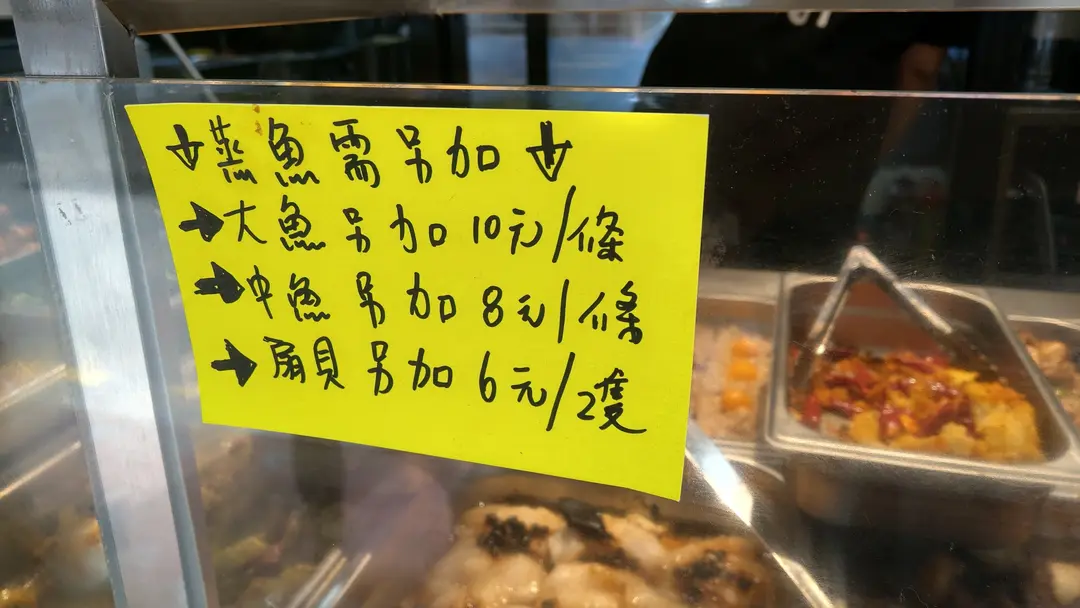 ↓蒸魚需另加↓
→大魚另加10元/條
→中魚另加8元/條
→扇貝另加6元/2隻